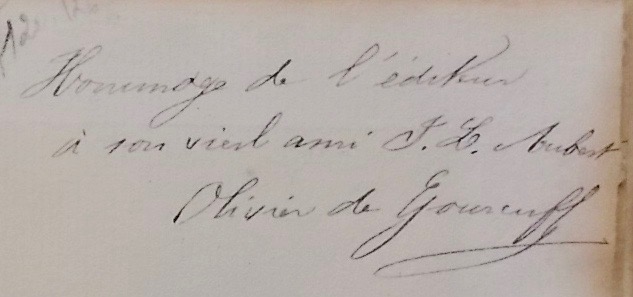 Hommage de l'éditeur
à son vieil ami F. L. Aubert
Olivier de Gourcuff